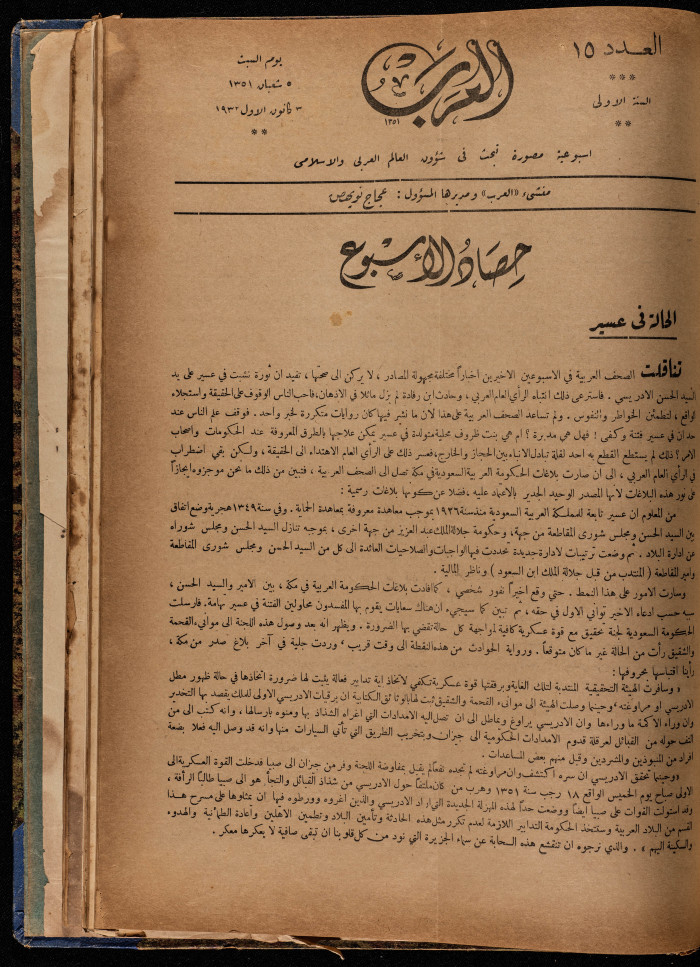 العدد ١٥
***
السنة الاولى
**
العرب
١٣٥١
يوم السبت
٥ شعبان ١٣٥١
٣ كانون الاول ١٩٣٢
**
اسبوعية مصورة تبحث فى شؤون العالم العربى والاسلامى
منشىء «العرب» ومديرها المسؤول: عجاج نويهض
حصاد الأسبوع
الحالة فى عسير
تناقلت الصحف العربية في الاسبوعين الاخيرين اخباراً مختلفة مجهولة المصادر، لا يركن الى صحتها، تفيد ان ثورة نشبت في عسير على يد
السيد الحسن الادريسي. فاسترعى ذلك انتباه الرأي العام العربي، وحادث ابن رفادة لم يزل ماثلا في الاذهان، فاحب الناس الوقوف على الحقيقة واستجلاء
الواقع، لتطمئن الخواطر والنفوس. ولم تساعد الصحف العربية على هذا لان ما نشر فيها كان روايات متكررة لخبر واحد. فوقف علم الناس عند
حد ان في عسير فتنة وكفى! فهل هي مدبرة؟ ام هي بنت ظروف محلية متولدة في عسير يمكن علاجها بالطرق المعروفة عند الحكومات واصحاب
الامر؟ ذلك لم يستطع القطع به احد لقلة تبادل الانباء بين الحجاز والخارج، فعسر ذلك على الرأي العام الاهتداء الى الحقيقة، ولكن بقي اضطراب
في الرأي العام العربي، الى ان صارت بلاغات الحكومة العربية السعودية في مكة تصل الى الصحف العربية، فتبين من ذلك ما نحن موجزوه ايجازاً
على نور هذه البلاغات لانها المصدر الوحيد الجدير بالاعتماد عليه، فضلا عن كونها بلاغات رسمية:
من المعلوم ان عسير تابعة للمملكة العربية السعودية منذ سنة ١٩٢٦ بموجب معاهدة معروفة بمعاهدة الحماية. وفي سنة ١٣٤٩ هجرية وضع اتفاق
بين السيد الحسن ومجلس شورى المقاطعة من جهة، وحكومة جلالة الملك عبد العزيز من جهة اخرى، بموجبه تنازل السيد الحسن ومجلس شوراه
عن ادارة البلاد. ثم وضعت ترتيبات لادارة جديدة تحددت فيها الواجبات والصلاحيات العائدة الى كل من السيد الحسن ومجلس شورى المقاطعة
وامير المقاطعة (المنتدب من قبل جلالة الملك ابن السعود) وناظر المالية.
وسارت الامور على هذا النمط. حتى وقع اخيراً نفور شخصي، كما افادت بلاغات الحكومة العربية في مكة، بين الامير والسيد الحسن،
سببه حسب ادعاء الاخير تواني الاول في حقه، ثم تبين كما سيجيء ان هناك سعايات يقوم بها المفسدون محاولين الفتنة في عسير تهامة. فارسلت
الحكومة السعودية لجنة تحقيق مع قوة عسكرية كافية لمواجهة كل حالة تقضي بها الضرورة. ويظهر انه بعد وصول هذه اللجنة الى موانىء القحمة
والشقيق رأت من الحالة غير ما كان متوقعاً. ورواية الحوادث من هذه النقطة الى وقت قريب، وردت جلية في آخر بلاغ صدر من مكة،
رأينا اقتباسها بحروفها:
«وسافرت الهيئة التحقيقية المنتدبة لتلك الغاية وبرفقتها قوة عسكرية تكفي لاتخاذ اية تدابير فعالة يثبت لها ضرورة اتخاذها في حالة ظهور مطل
الادريسي او مراوغته وحينما وصلت الهيئة الى موانىء القحمة والشقيق ثبت لها بالوثائق الكتابية ان برقيات الادريسي الاولى للملك يقصد بها التخدير
وان وراء الاكمة ما وراءها وان الادريسي يراوغ ويماطل الى ان تصل اليه الامدادات التي اغراه الشذاذ بها ومنوه بارسالها، وانه كتب الى من
التف حوله من القبائل لعرقلة قدوم الامدادات الحكومية الى جيزان وبتخريب الطريق التي تأتي السيارات منها وانه قد وصل اليه فعلا بضعة
افراد من المنبوذين والمشردين وقيل منهم بعض المساعدات.
«وحينما تحقق الادريسي ان سره اكتشف وان مراوغته لم تجده نفعاً لم يقبل بمفاوضة اللجنة وفر من جيزان الى صبيا فدخلت القوة العسكرية الى
الاولى صباح يوم الخميس الواقع ١٨ رجب سنة ١٣٥١ وهرب من كان ملتفاً حول الادريسي من شذاذ القبائل والتجأ هو الى صبيا طالباً الرأفة،
وقد استولت القوات على صبيا ايضاً ووضعت حداً لهذه المهزلة الجديدة التي اراد الادريسي والذين اغروه وورطوه فيها ان يمثلوها على مسرح هذا
القسم من البلاد العربية وستتخذ الحكومة التدابير اللازمة لعدم تكرر مثل هذه الحادثة وتأمين البلاد وتطمين الاهلين واعادة الطمأنينة والهدوء
والسكينة اليهم». والذي نرجوه ان تنقشع هذه السحابة عن سماء الجزيرة التي نود من كل قلوبنا ان تبقى صافية لا يعكرها معكر.